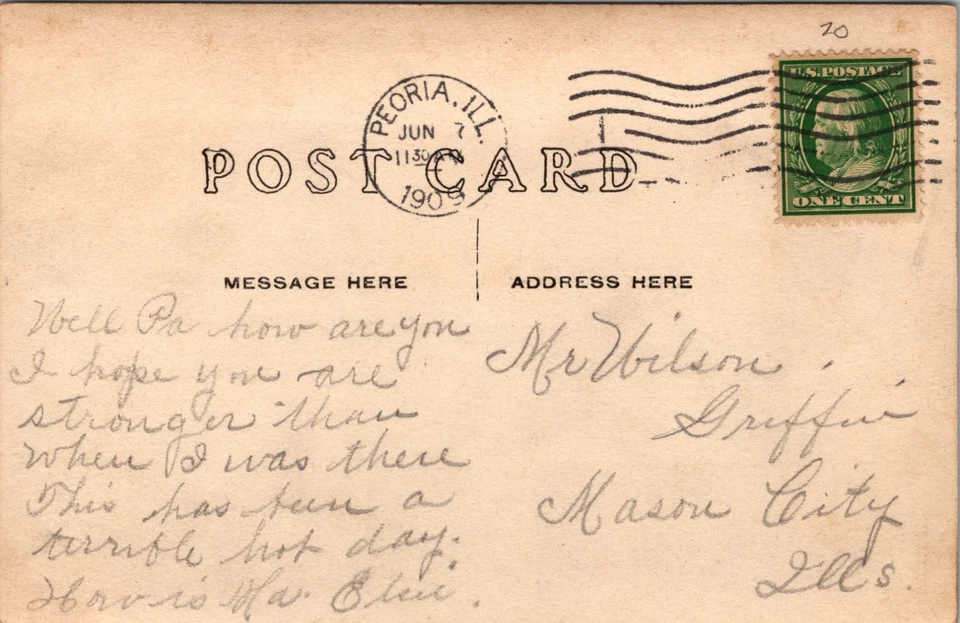 20
U.S. POSTAGE
ONE CENT
PEORIA, ILL.
JUN 7
11 30 AM
1909
POST CARD
MESSAGE HERE
ADDRESS HERE
Well Pa how are you
I hope you are
stronger than
when I was there
This has been a
terrible hot day.
How is Ma. Elsie.
Mr Wilson
Griffin
Mason City
Ills.